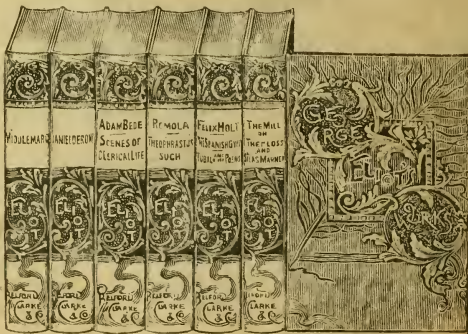 MIDDLEMARCH
ELIOT
BELFORD
CLARKE
& Co
DANIEL DERONDA
ELIOT
BELFORD
CLARKE
& Co
ADAM BEDE
SCENES OF
CLERICAL LIFE
ELIOT
BELFORD
CLARKE
& Co
ROMOLA
THEOPHRASTUS
SUCH
ELIOT
BELFORD
CLARKE
& Co
FELIX HOLT
THE SPANISH GYPSY
JUBAL AND OTHER POEMS
ELIOT
BELFORD
CLARKE
& Co
THE MILL
ON
THE FLOSS
AND
SILAS MARNER
ELIOT
BELFORD
CLARKE
& Co
GEORGE
ELIOT
WORKS